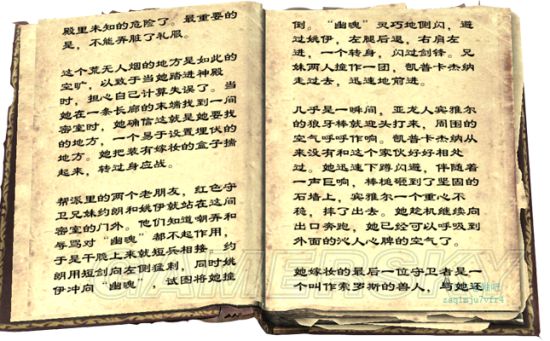 殿里未知的危险了。最重要的
是，不能弄脏了礼服。
这个荒无人烟的地方是如此的
空旷，以致于当她踏进神殿
时，担心自己计算失误了。当
她在一条长廊的末端找到一间
密室时，她确信这就是她要找
的地方，一个易于设置埋伏的
地方。她把装有嫁妆的盒子揣
起来，转过身应战。
帮派里的两个老朋友，红色守
卫兄妹约朗和姚伊就站在这间
密室的门外。他们知道嘲弄和
辱骂对“幽魂”都不起作用，
于是干脆上来就短兵相接。约
朗用短剑向左侧猛刺，同时姚
伊冲向“幽魂”，试图将她撞
倒。“幽魂”灵巧地侧闪，避
过姚伊，左腿后退，右肩左
进，一个转身，闪过剑锋。兄
妹两人撞作一团，凯普卡杰纳
走过去，迅速地前进。
几乎是一瞬间，亚龙人宾雅尔
的狼牙棒就迎头打来，周围的
空气呼呼作响。凯普卡杰纳从
来没有和这个家伙好好相处
过。她迅速下蹲闪避，伴随着
一声巨响，棒槌砸到了坚固的
石墙上，宾雅尔一个重心不
稳，摔了出去。她趁机继续向
出口奔跑，她已经可以呼吸到
外面的沁人心脾的空气了。
她嫁妆的最后一位守卫者是一
个叫作索罗斯的兽人，与她还
GAMERSKY
zaqimju7vfr4